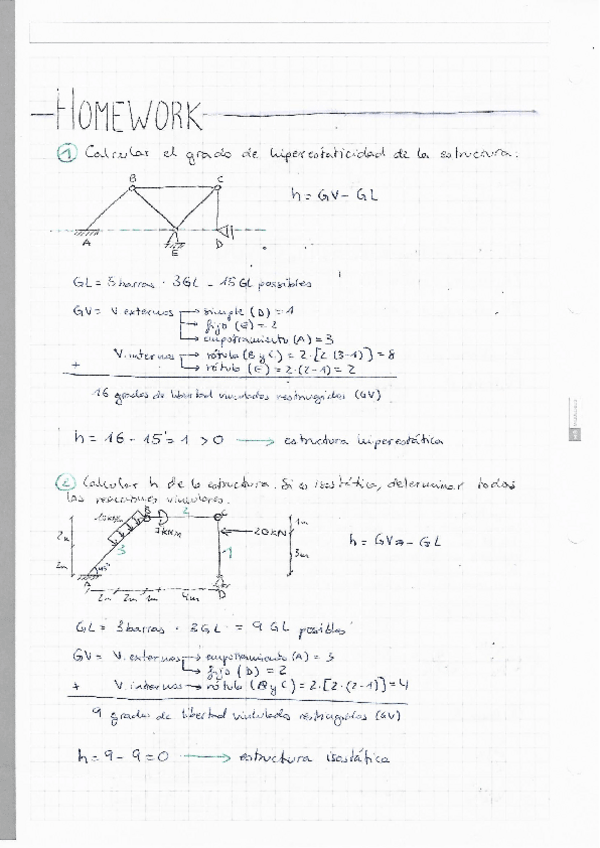 HOMEWORK
① Calcular el grado de hiperestaticidad de la estructura:
B C
h = GV - GL
A E D
GL = 5 barras · 3GL = 15 GL posibles
GV = V. externos → simple (D) = 1
→ fijo (E) = 2
→ empotramiento (A) = 3
V. internos → rótula (B y C) = 2·[2·(3-1)] = 8
+ → rótula (E) = 2·(2-1) = 2
16 grados de libertad vinculados restringidos (GV)
h = 16 - 15 = 1 > 0 → estructura hiperestática
② Calcular h de la estructura. Si es isostática, determinar todas
las reacciones vinculares.
B 2 C 1m
2m 3 20KN 1 3m
h = GV - GL
2m A 45°
2m 2m 1m 4m D
GL = 3 barras · 3GL = 9 GL posibles
GV = V. externos → empotramiento (A) = 3
→ fijo (D) = 2
+ V. internos → rótula (B y C) = 2·[2·(2-1)] = 4
9 grados de libertad vinculados restringidos (GV)
h = 9 - 9 = 0 → estructura isostática